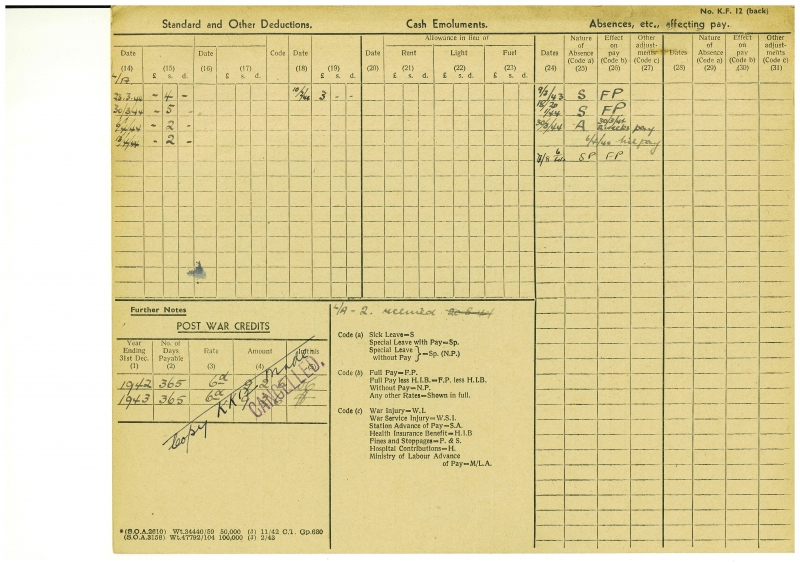 No. K.F. 12 (back)
Standard and Other Deductions.
Cash Emoluments.
Absences, etc., affecting pay.
Allowance in lieu of
Date (14)
£ s. d. (15)
Date (16)
£ s. d. (17)
Code
Date (18)
£ s. d. (19)
Date (20)
Rent £ s. d. (21)
Light £ s. d. (22)
Fuel £ s. d. (23)
Dates (24)
Nature of Absence (Code a) (25)
Effect on pay (Code b) (26)
Other adjust- ments (Code c) (27)
Dates (28)
Nature of Absence (Code a) (29)
Effect on pay (Code b) (30)
Other adjust- ments (Code c) (31)
L/A
23.3.44 - 4 -
30/3/44 - 5 -
- 2 -
- 2 -
3 - -
S FP
S FP
A pay
pay
SP FP
Further Notes
POST WAR CREDITS
Year Ending 31st Dec. (1)
No. of Days Payable (2)
Rate (3)
Amount (4)
Initials
1942 365 6d
1943 365 6d
Copy made
CANCELLED.
L/A - 2. received
Code (a) Sick Leave=S
Special Leave with Pay=Sp.
Special Leave without Pay }=Sp. (N.P.)
Code (b) Full Pay=F.P.
Full Pay less H.I.B.=F.P. less H.I.B.
Without Pay=N.P.
Any other Rates=Shown in full.
Code (c) War Injury=W.I.
War Service Injury=W.S.I.
Station Advance of Pay=S.A.
Health Insurance Benefit=H.I.B
Fines and Stoppages=F. & S.
Hospital Contributions=H.
Ministry of Labour Advance
of Pay=M/L.A.
*(S.O.A.2610) Wt.34440/59 50,000 (3) 11/42 C.T. Gp.680
(S.O.A.3158) Wt.47792/104 100,000 (3) 2/43